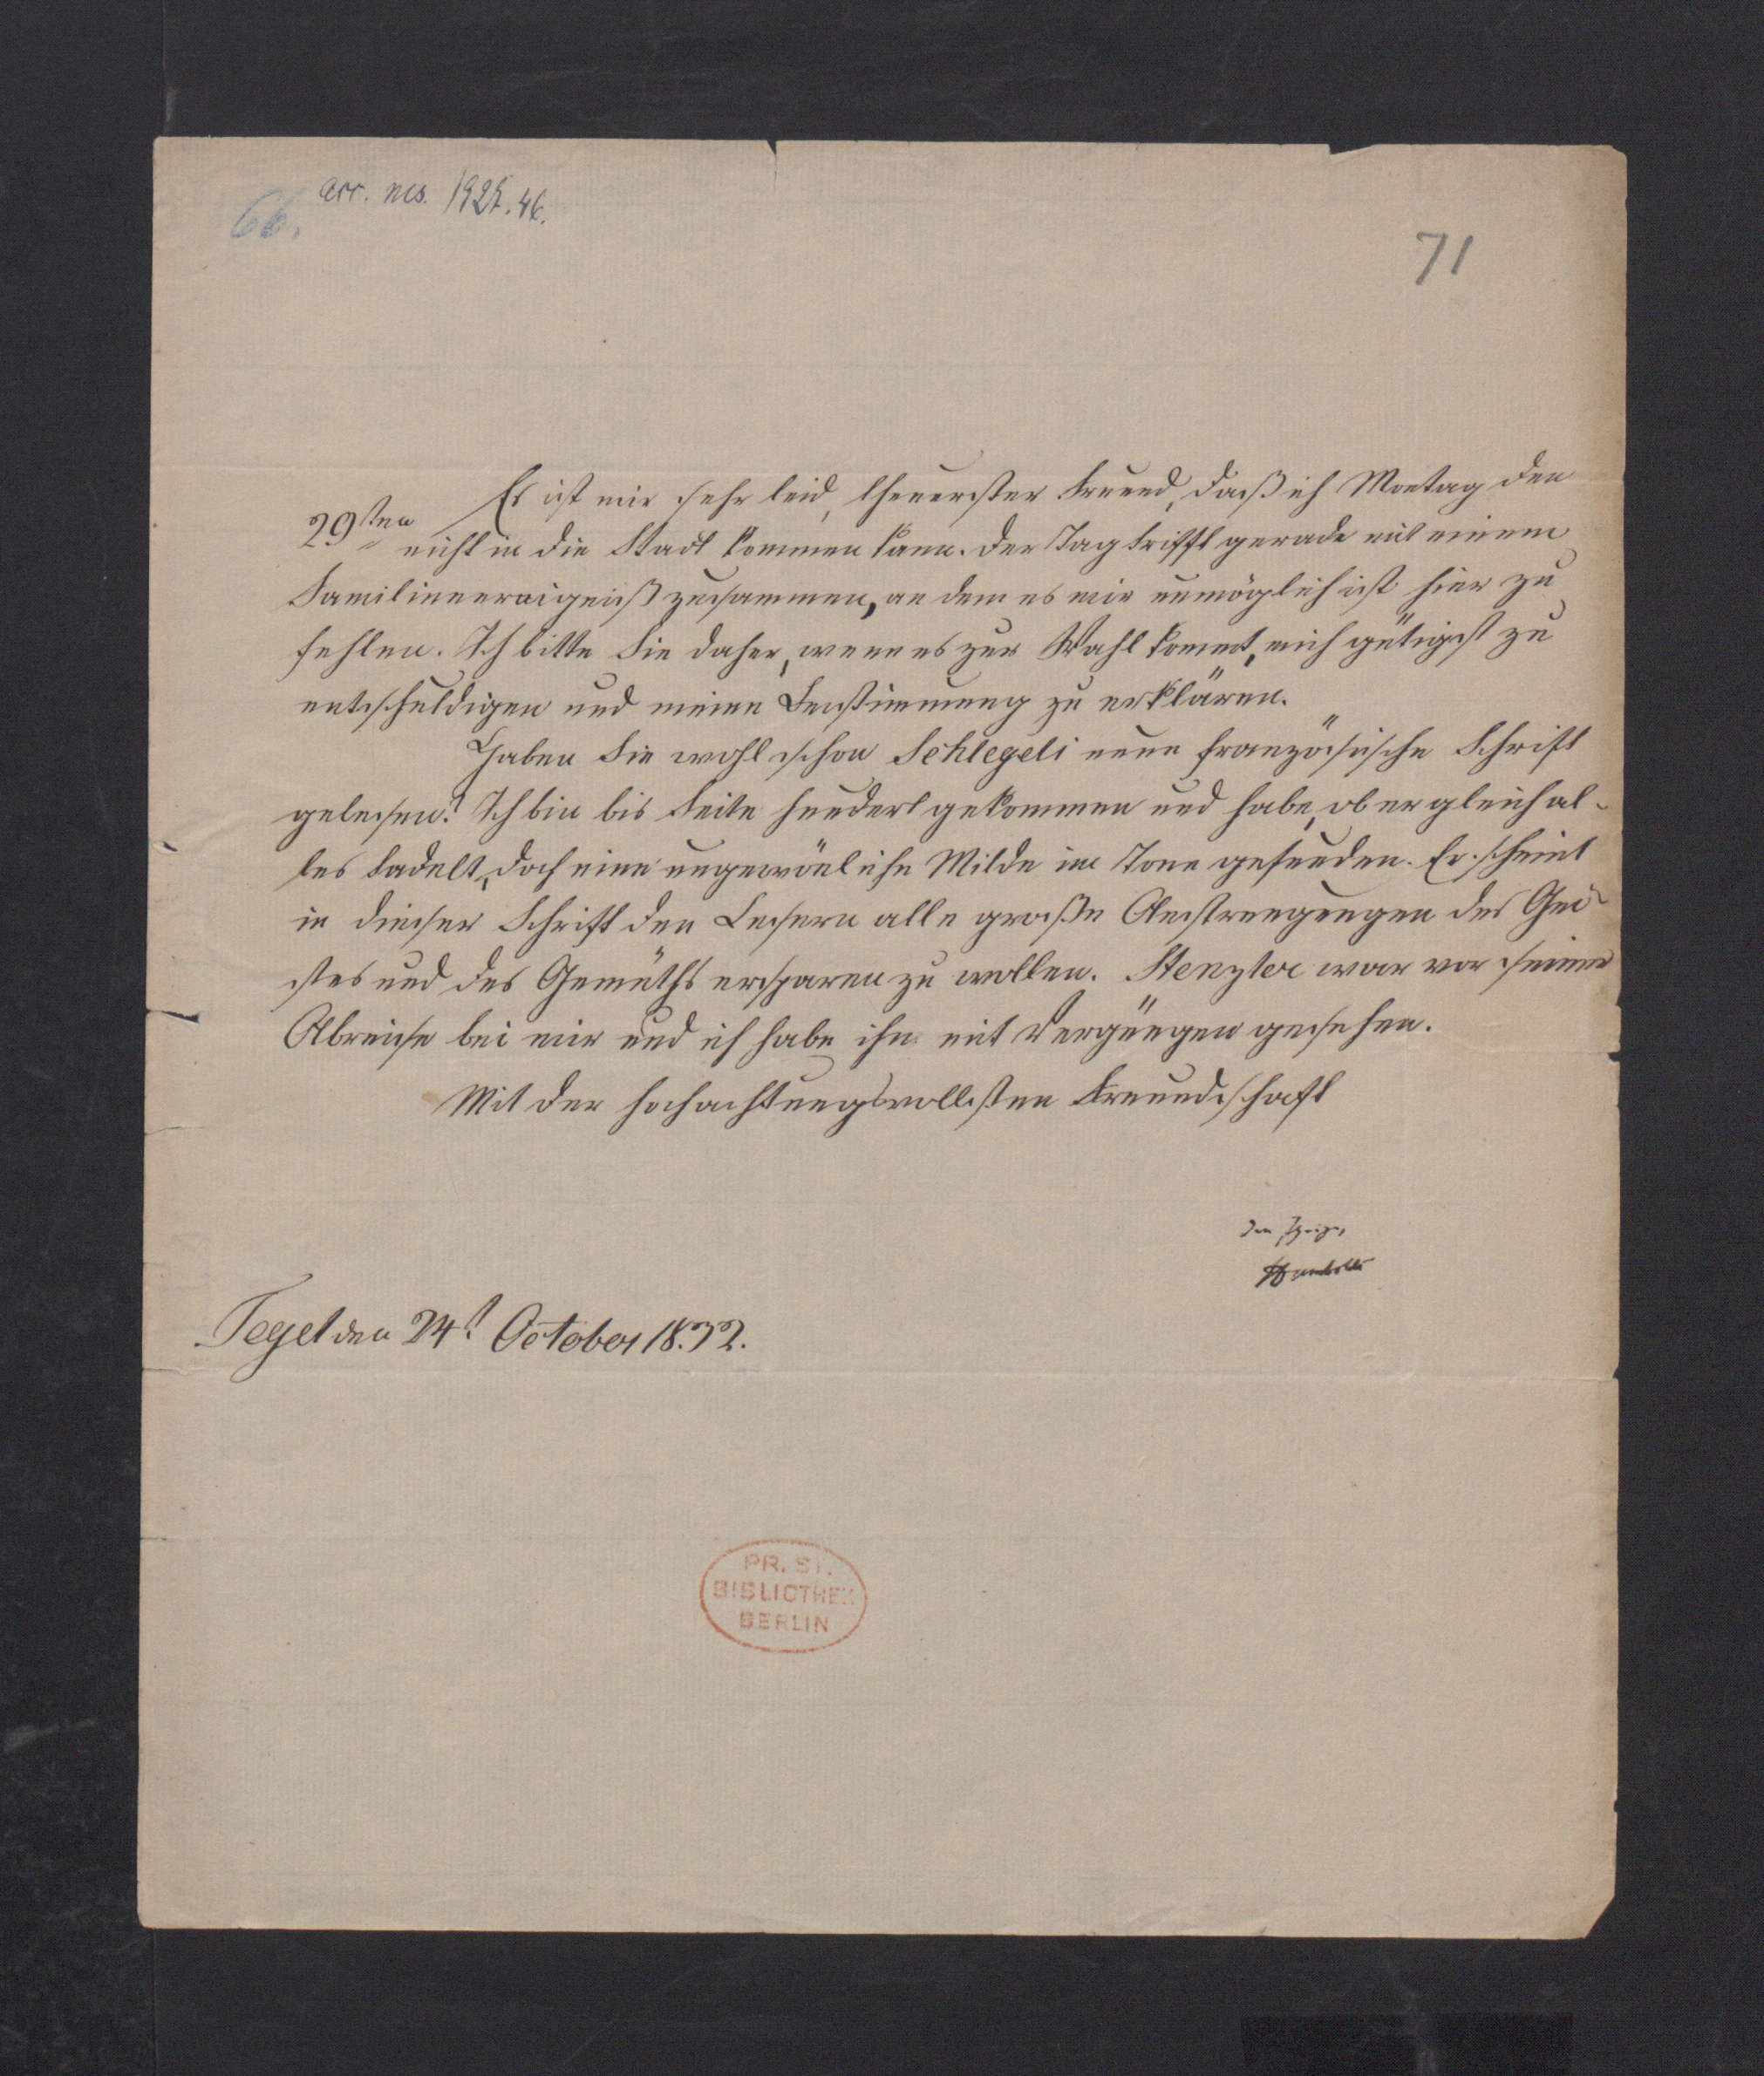 66.
acc. ms. 1925.46.
71
Es ist mir sehr leid, theuerster Freund, daß ich Montag den
29sten nicht in die Stadt kommen kann. Der Tag trifft gerade mit einem
Familienereigniß zusammen, an dem es mir unmöglich ist hier zu
fehlen. Ich bitte Sie daher, wenn es zur Wahl kommt, mich gütigst zu
entschuldigen und meine Zustimmung zu erklären.
Haben Sie wohl schon Schlegels neue französische Schrift
gelesen? Ich bin bis Seite hundert gekommen und habe, ob er gleich al-
les tadelt, doch eine ungewönliche Milde im Tone gefunden. Er scheint
in dieser Schrift den Lesern alle große Anstrengungen des Gei-
stes und des Gemüths ersparen zu wollen. Stenzler war vor seiner
Abreise bei mir und ich habe ihn mit Vergnügen gesehen.
Mit der hochachtungsvollsten Freundschaft
der Ihrige,
Humboldt
Tegel den 24t October 1832.
PR. ST.
BIBLIOTHEK
BERLIN